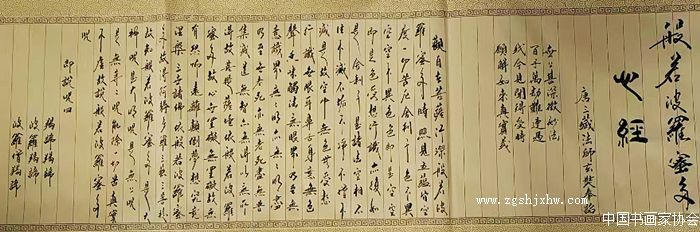 般若波羅蜜多
心經
唐三藏法師玄奘奉詔
無上甚深微妙法
百千萬劫難遭遇
我今見聞得受持
願解如來真實義
觀自在菩薩行深般若波
羅蜜多時照見五蘊皆空
度一切苦厄舍利子色不異
空空不異色色即是空空
即是色受想行識亦復如
是舍利子是諸法空相不
生不滅不垢不淨不增不
減是故空中無色無受想
行識無眼耳鼻舌身意無色
聲香味觸法無眼界乃至無
意識界無無明亦無無明盡
乃至無老死亦無老死盡無苦
集滅道無智亦無得以無所
得故菩提薩埵依般若波羅
蜜多故心無罣礙無罣礙故無
有恐怖遠離顛倒夢想究竟
涅槃三世諸佛依般若波羅蜜
多故得阿耨多羅三藐三菩提
故知般若波羅蜜多是大
神咒是大明咒是無上咒
是無等等咒能除一切苦真實
不虛故說般若波羅蜜多
咒
即說咒曰
揭諦揭諦
波羅揭諦
波羅僧揭諦
www.zgshjxhw.com
中国书画家协会